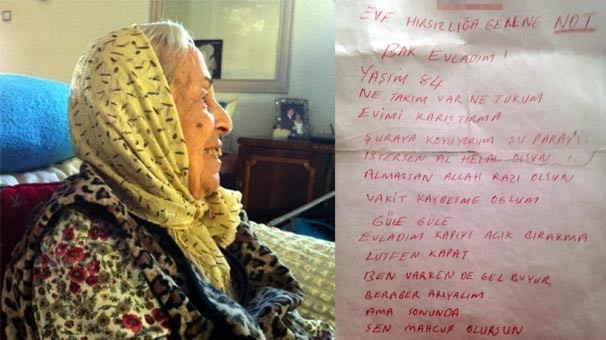 EVE HIRSIZLIĞA GELENE NOT
BAK EVLADIM !
YAŞIM 84
NE TAKIM VAR NE TUKUM
EVIMI KARIŞTIRMA
ŞURAYA KOYUYORUM ŞU PARAYI
ISTERSEN AL HELAL OLSUN
ALMASSAN ALLAH RAZI OLSUN
VAKIT KAYBETME OĞLUM
GÜLE GÜLE
EVLADIM KAPIYI AÇIK BIRAKMA
LÜTFEN KAPAT
BEN VARKEN DE GEL BUYUR
BERABER ARIYALIM
AMA SONUNDA
SEN MAHCUP OLURSUN